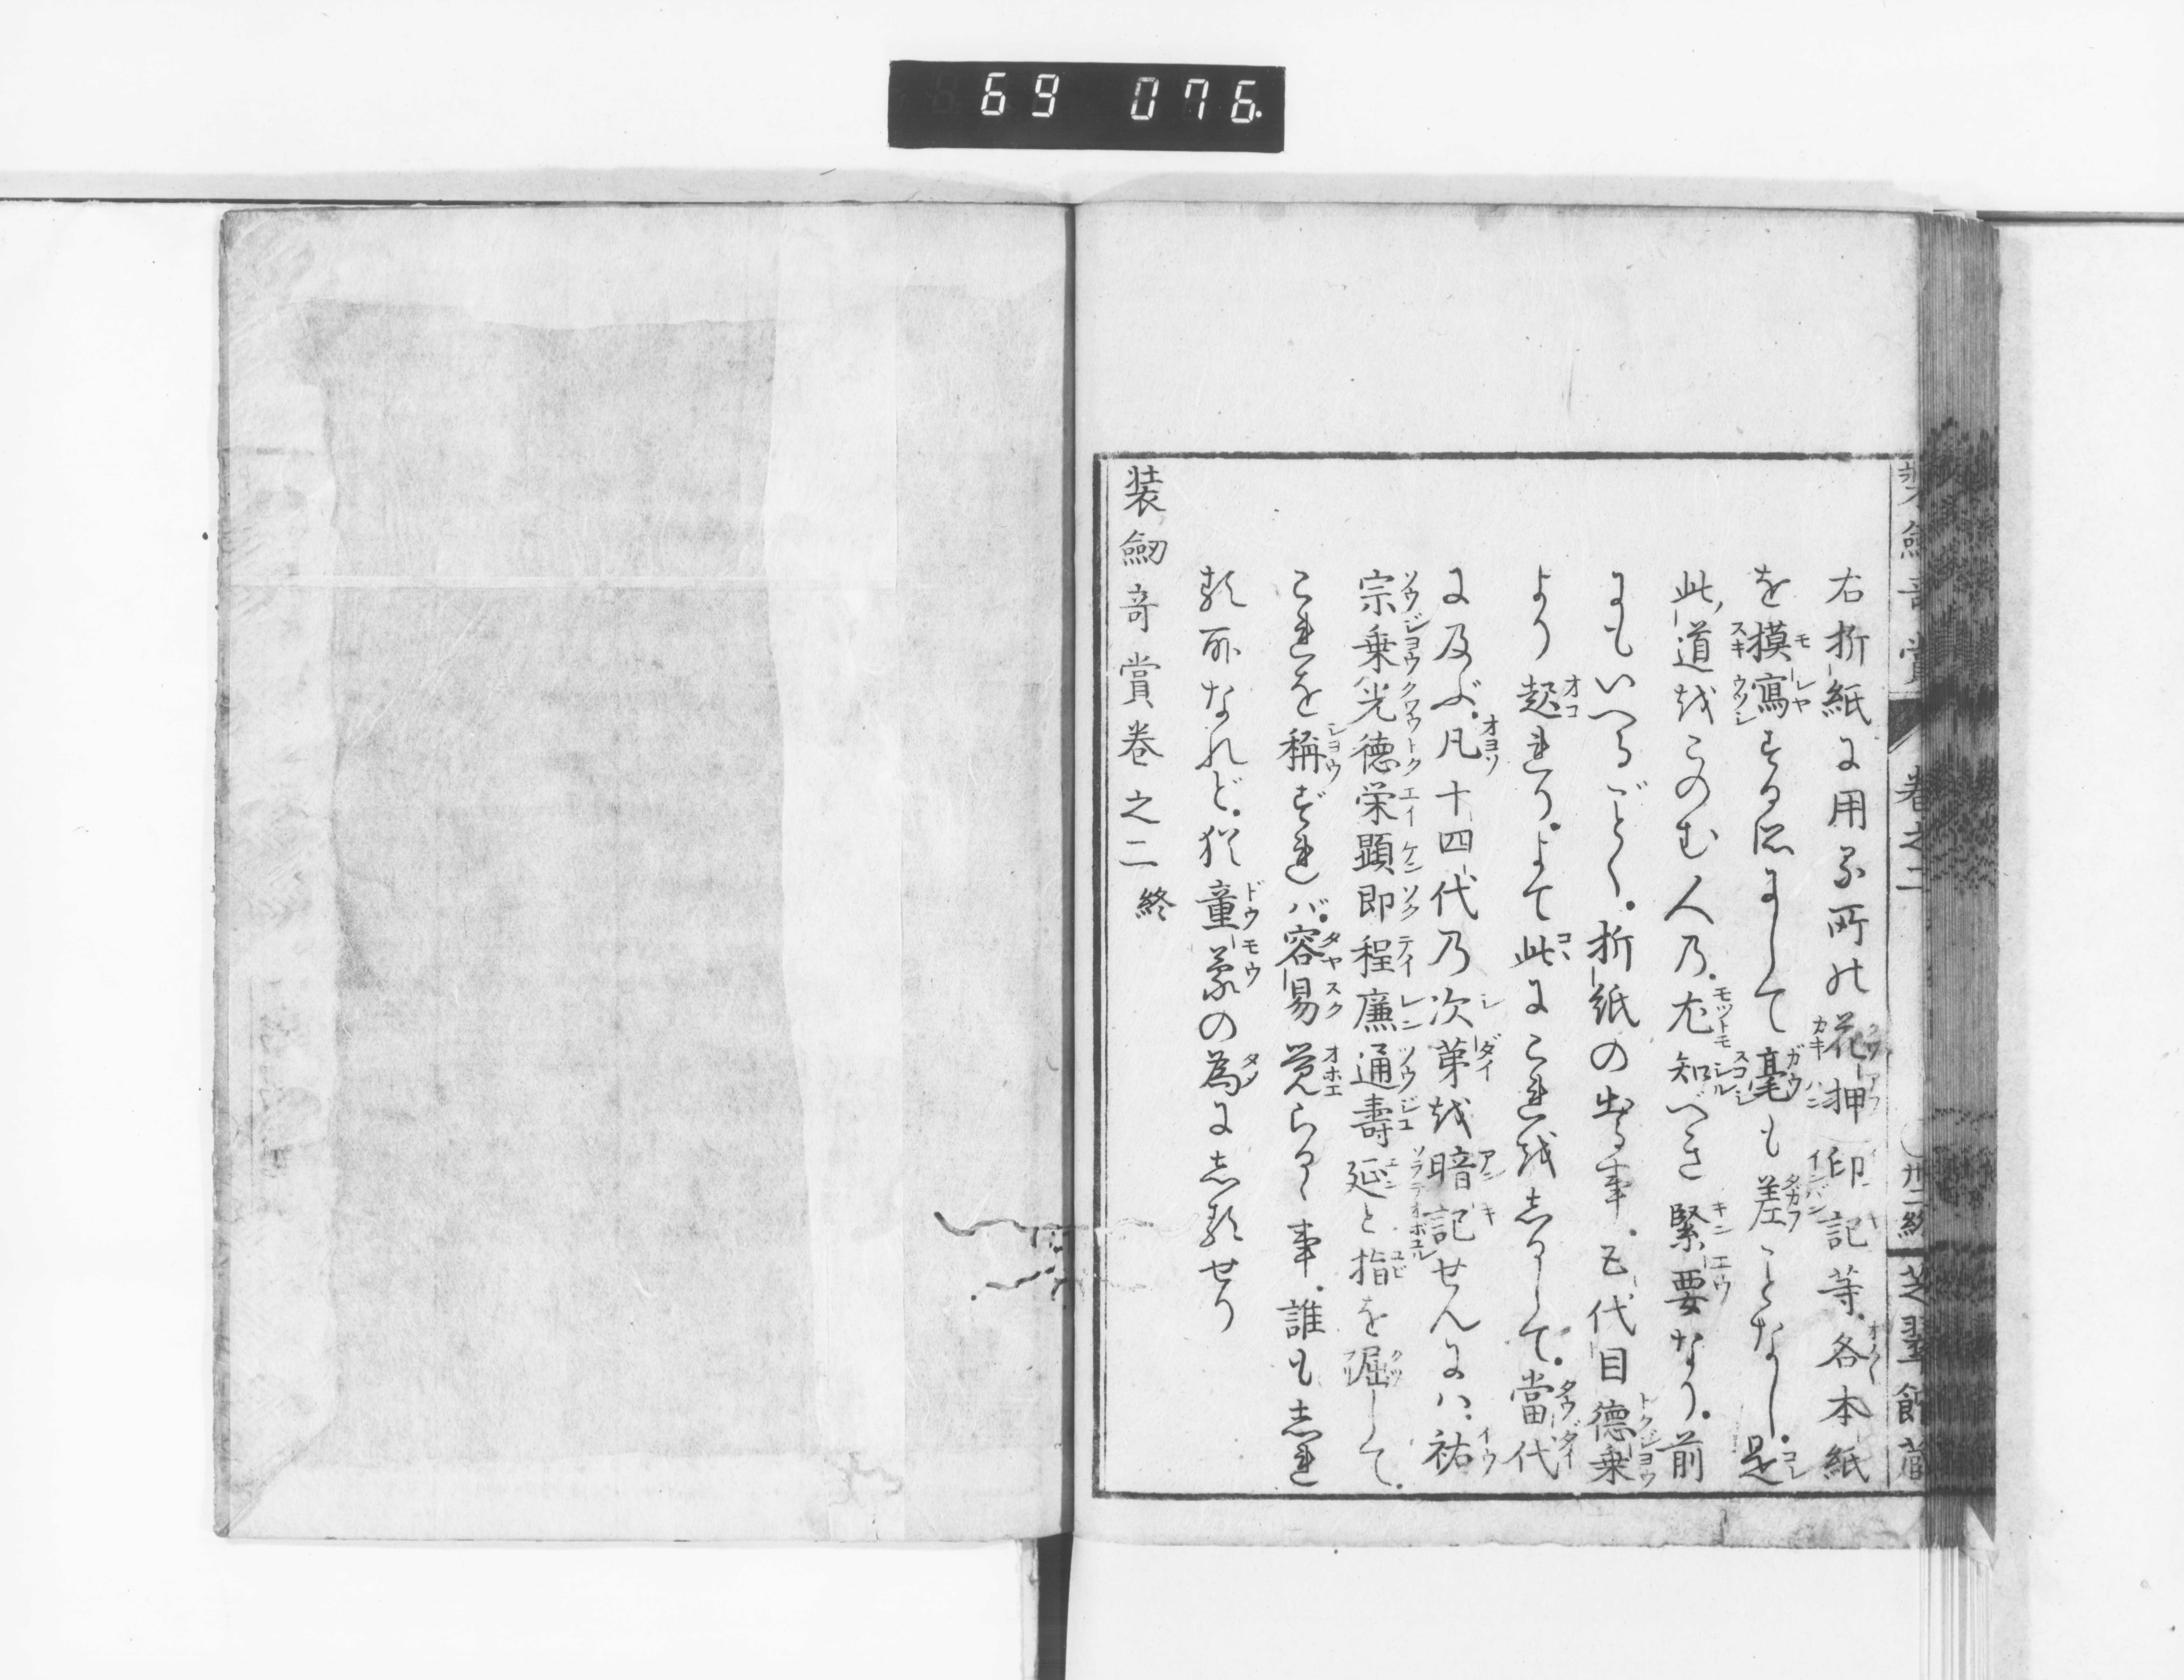 69 076.
右折紙に用る所の花押印記等。各本紙
を摸寫する処にして毫も差ことなし。是
此道をこのむ人の。尤知べき緊要なり。前
にもいへるごとく。折紙の出る事。五代目徳乗
より起れり。よて此にこれをしるして。當代
に及ぶ。凡十四代の次第を暗記せんには、祐
宗乗光徳栄顕即程廉通壽延と指を屈して。
これを稱ずれバ。容易覚らるゝ事。誰もしれ
る所なれど。猶童蒙の為にしるせり
装劔奇賞巻之二終
装劔奇賞 巻之二 卅二終 芝翠館蔵